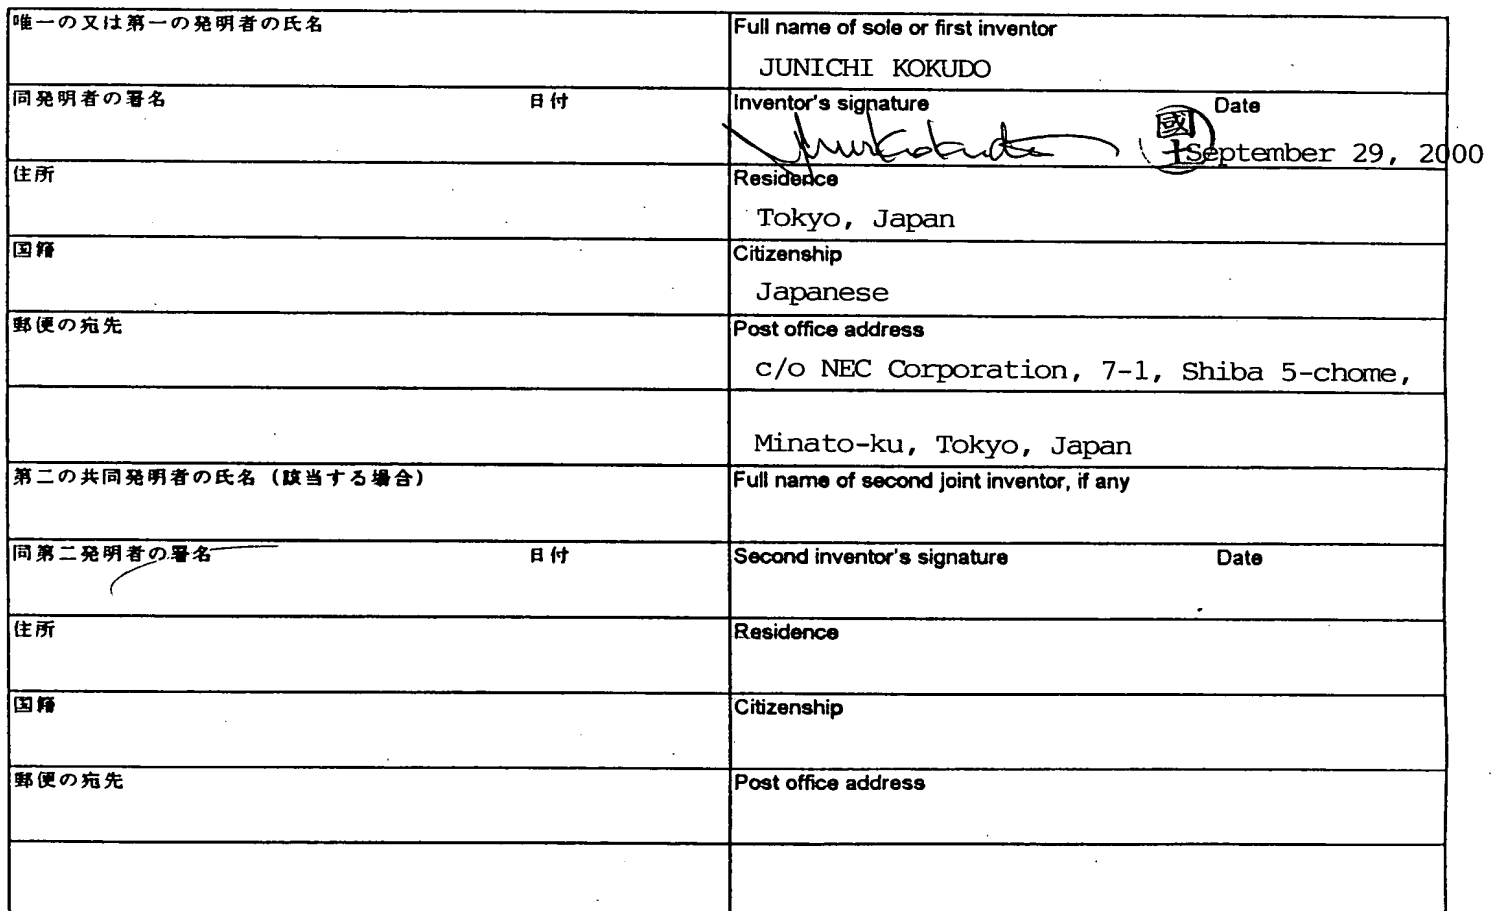 唯一の又は第一の発明者の氏名
Full name of sole or first inventor
JUNICHI KOKUDO
同発明者の署名 日付
Inventor's signature Date
國土
September 29, 2000
住所
Residence
Tokyo, Japan
国籍
Citizenship
Japanese
郵便の宛先
Post office address
c/o NEC Corporation, 7-1, Shiba 5-chome,
Minato-ku, Tokyo, Japan
第二の共同発明者の氏名（該当する場合）
Full name of second joint inventor, if any
同第二発明者の署名 日付
Second inventor's signature Date
住所
Residence
国籍
Citizenship
郵便の宛先
Post office address